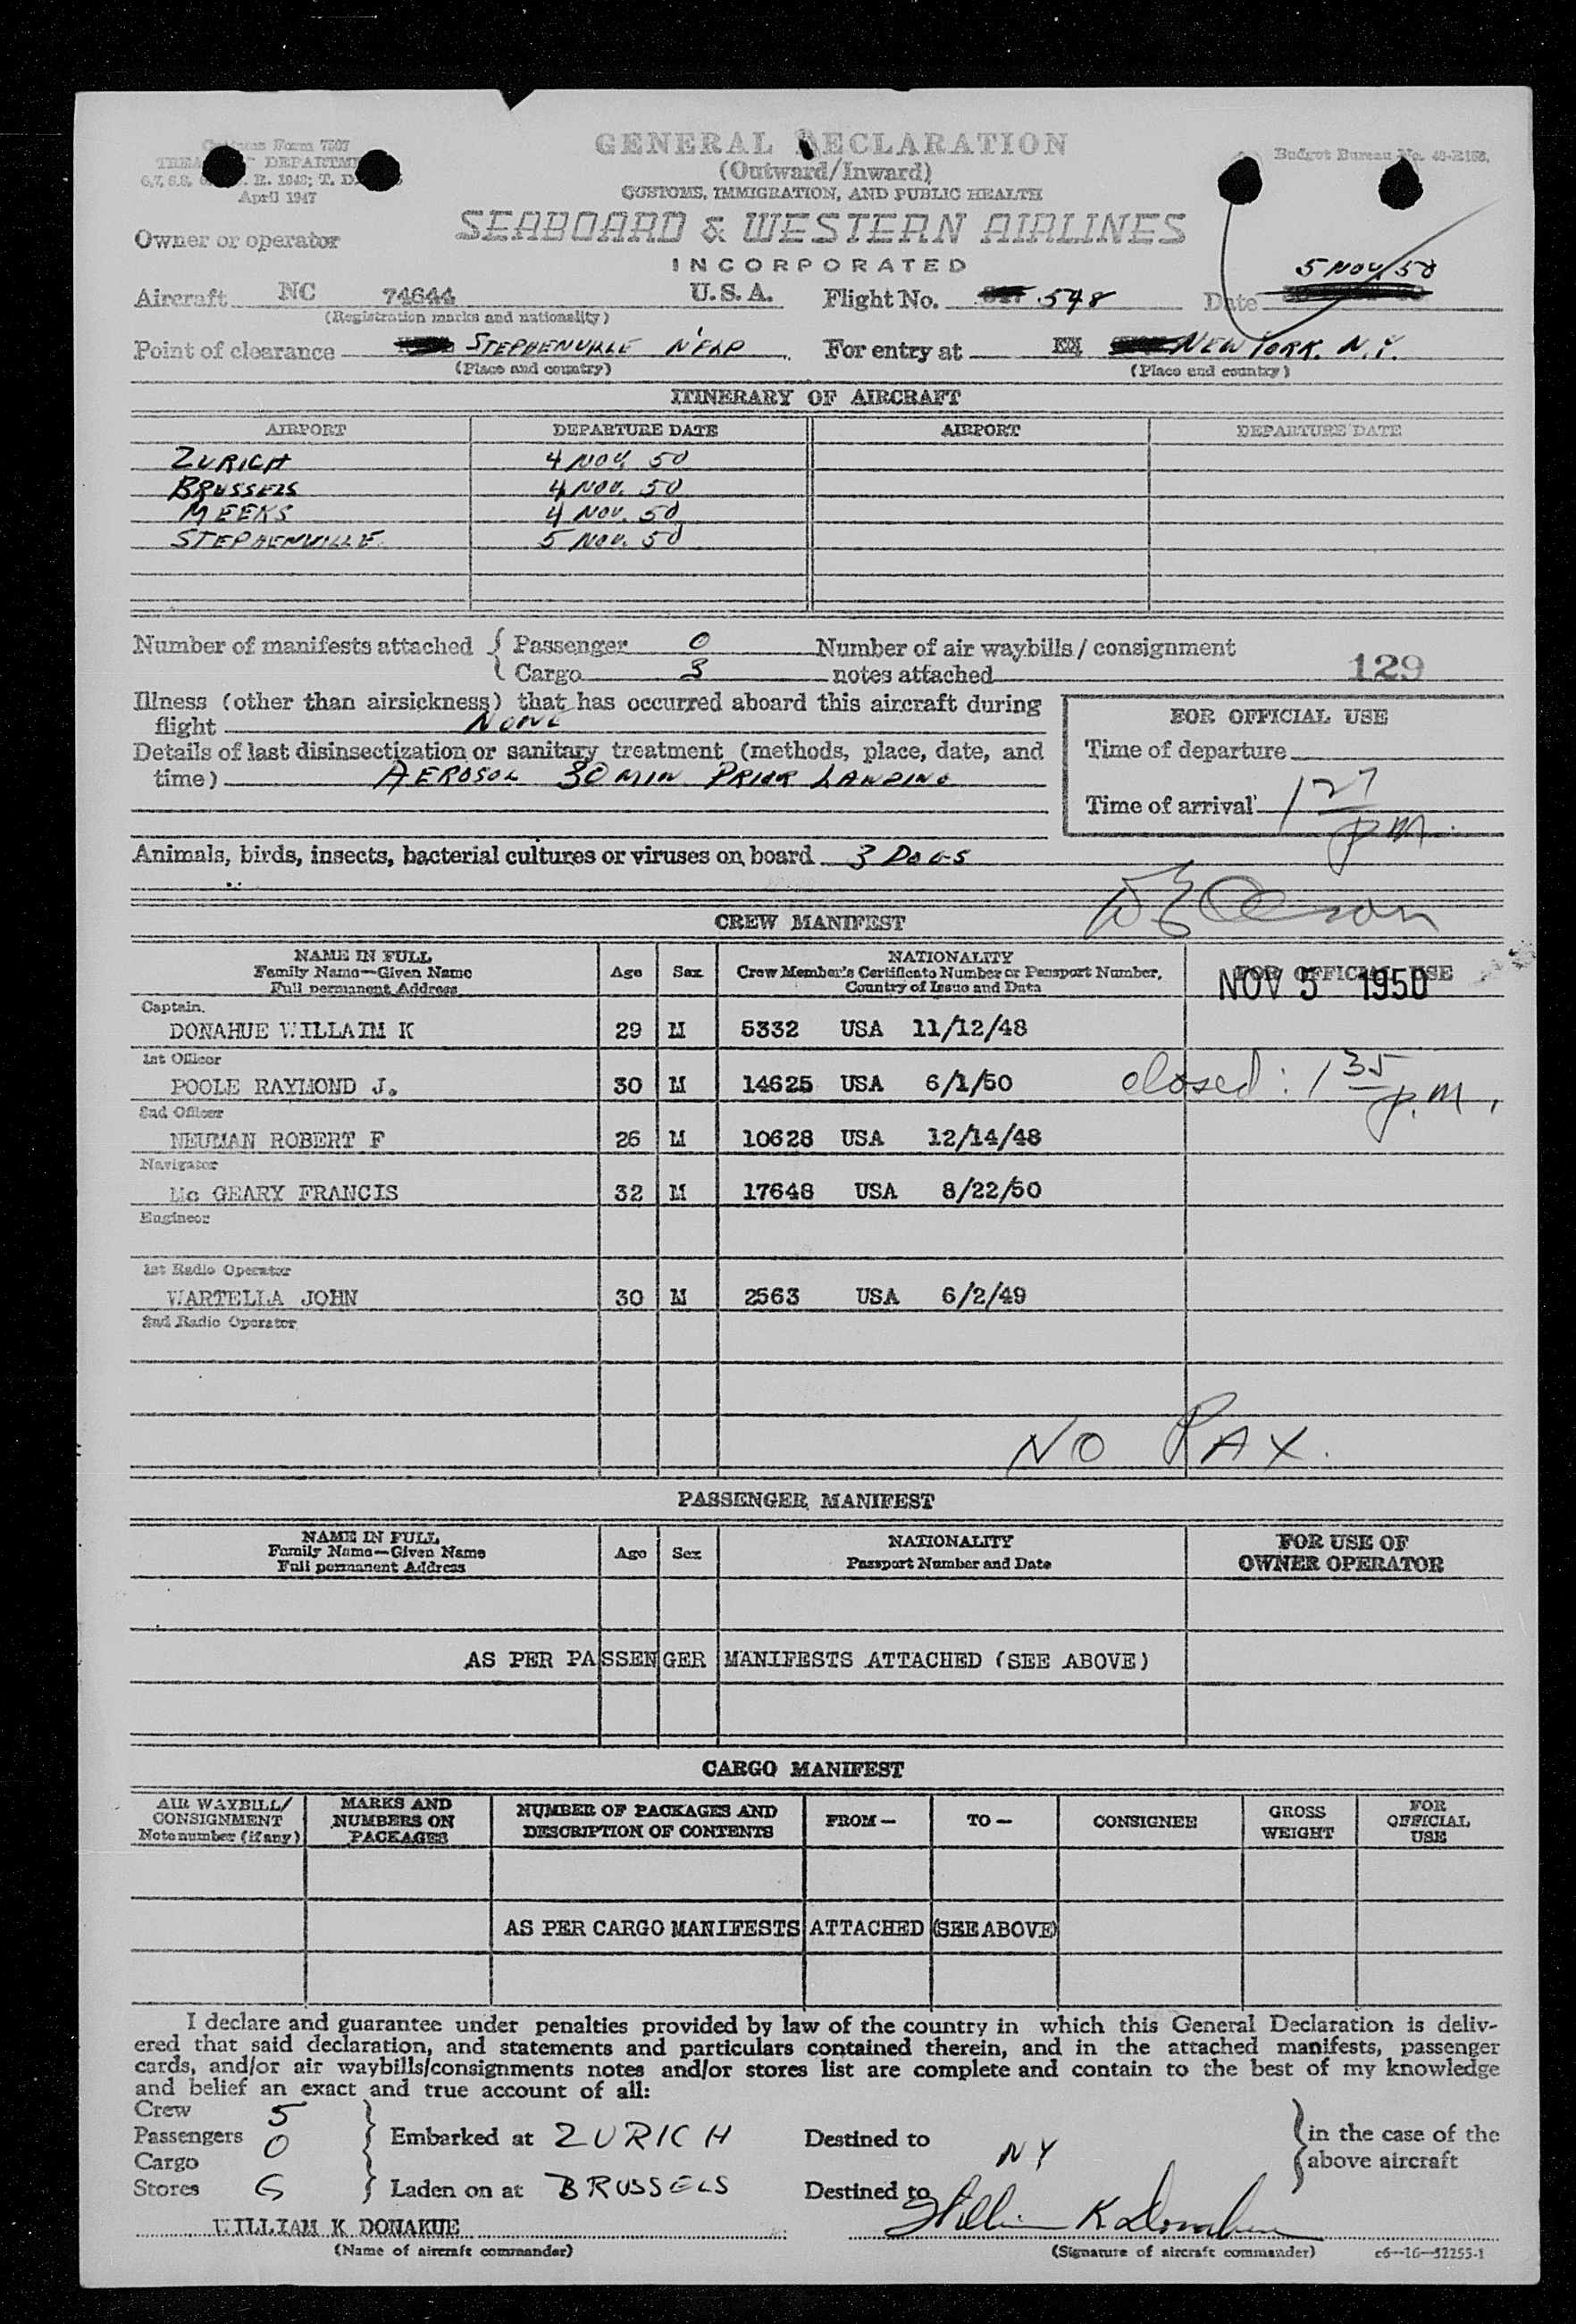 Customs Form 7507
GENERAL DECLARATION
Budget Bureau No.
DEPARTMENT
(Outward/Inward)
April 1947
CUSTOMS, IMMIGRATION, AND PUBLIC HEALTH
Owner or operator SEABOARD & WESTERN AIRLINES
INCORPORATED
5 NOV. 50
Aircraft NC 74644 U.S.A. Flight No. 548 Date
(Registration marks and nationality)
Point of clearance STEPHENVILLE N'FLD For entry at NEW YORK. N.Y.
(Place and country) (Place and country)
ITINERARY OF AIRCRAFT
AIRPORT DEPARTURE DATE AIRPORT DEPARTURE DATE
ZURICH 4 NOV. 50
BRUSSELS 4 NOV. 50
MEEKS 4 NOV. 50
STEPHENVILLE 5 NOV. 50
Number of manifests attached { Passenger 0 Number of air waybills / consignment
Cargo 3 notes attached 129
Illness (other than airsickness) that has occurred aboard this aircraft during
flight NONE
FOR OFFICIAL USE
Details of last disinsectization or sanitary treatment (methods, place, date, and
time) AEROSOL 30 MIN PRIOR LANDING
Time of departure
Time of arrival 1 27 p.m.
Animals, birds, insects, bacterial cultures or viruses on board 3 DOGS
CREW MANIFEST
NAME IN FULL Age Sex NATIONALITY FOR OFFICIAL USE
Family Name—Given Name Crew Member's Certificate Number or Passport Number,
Full permanent Address Country of Issue and Date
NOV 5 1950
Captain.
DONAHUE WILLAIM K 29 M 5332 USA 11/12/48
1st Officer
POOLE RAYMOND J. 30 M 14625 USA 6/1/50 closed: 1 35 p.m.
2nd Officer
NEUMAN ROBERT F 26 M 10628 USA 12/14/48
Navigator
Mc GEARY FRANCIS 32 M 17648 USA 8/22/50
Engineer
1st Radio Operator
WARTELLA JOHN 30 M 2563 USA 6/2/49
2nd Radio Operator
NO PAX.
PASSENGER MANIFEST
NAME IN FULL Age Sex NATIONALITY FOR USE OF
Family Name—Given Name Passport Number and Date OWNER OPERATOR
Full permanent Address
AS PER PASSENGER MANIFESTS ATTACHED (SEE ABOVE)
CARGO MANIFEST
AIR WAYBILL/ MARKS AND NUMBER OF PACKAGES AND FROM — TO — CONSIGNEE GROSS FOR
CONSIGNMENT NUMBERS ON DESCRIPTION OF CONTENTS WEIGHT OFFICIAL
Note number (if any) PACKAGES USE
AS PER CARGO MANIFESTS ATTACHED (SEE ABOVE)
I declare and guarantee under penalties provided by law of the country in which this General Declaration is deliv-
ered that said declaration, and statements and particulars contained therein, and in the attached manifests, passenger
cards, and/or air waybills/consignments notes and/or stores list are complete and contain to the best of my knowledge
and belief an exact and true account of all:
Crew 5
Passengers 0 } Embarked at ZURICH Destined to NY } in the case of the
Cargo above aircraft
Stores G } Laden on at BRUSSELS Destined to
WILLIAM K DONAKUE William K Donahue
(Name of aircraft commander) (Signature of aircraft commander) c6—16—52255-1